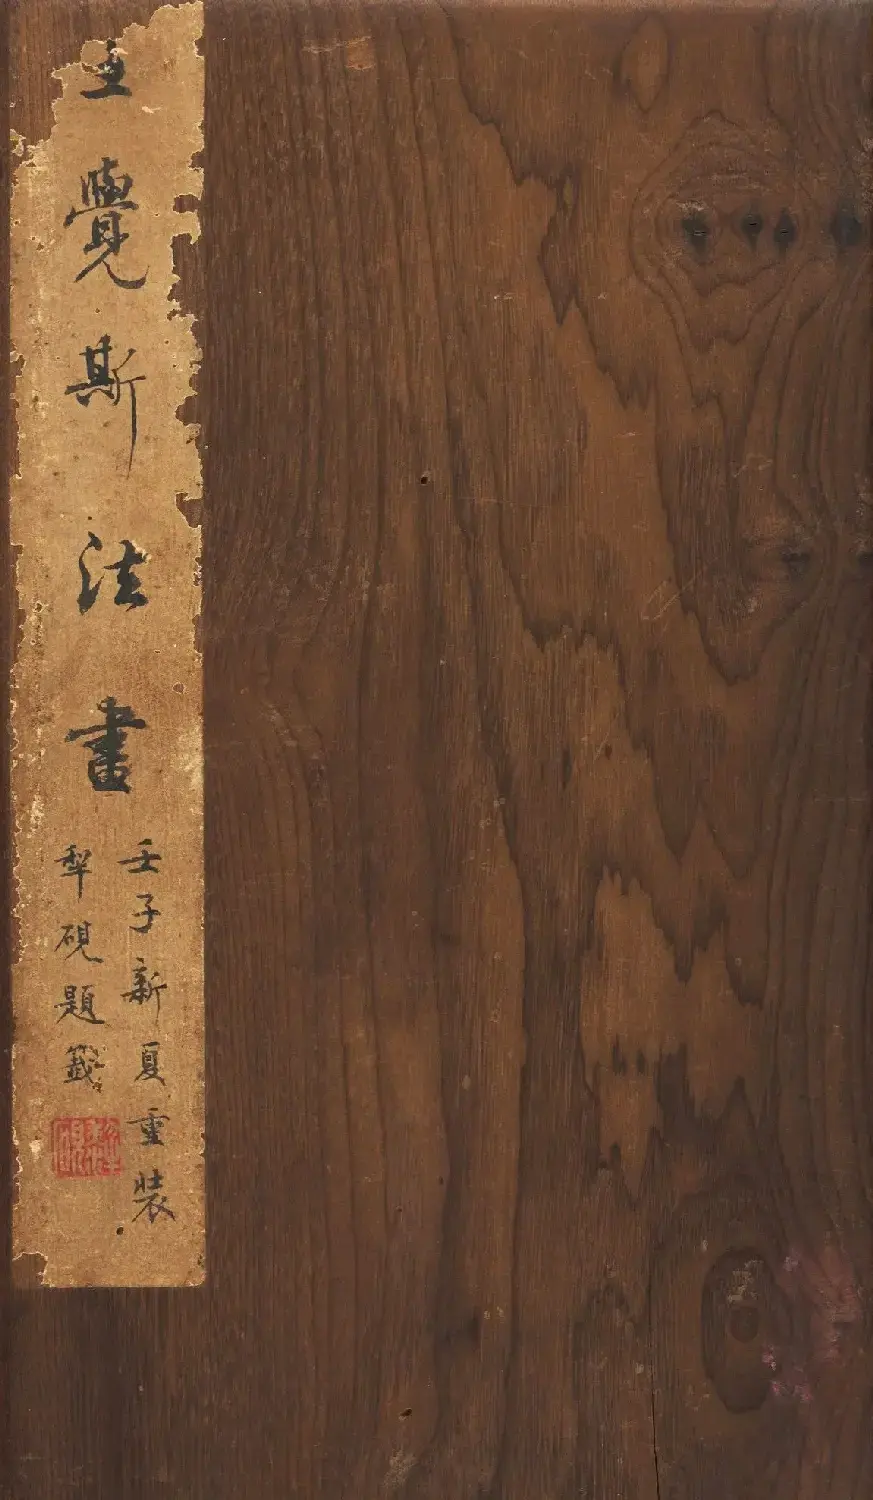 王覺斯法書
壬子新夏重裝
犂硯題籤